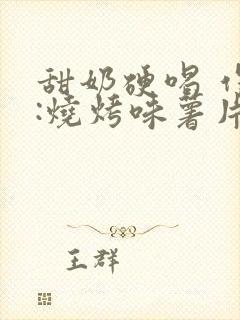 甜奶硬唱
:燒烤味薯片
王群